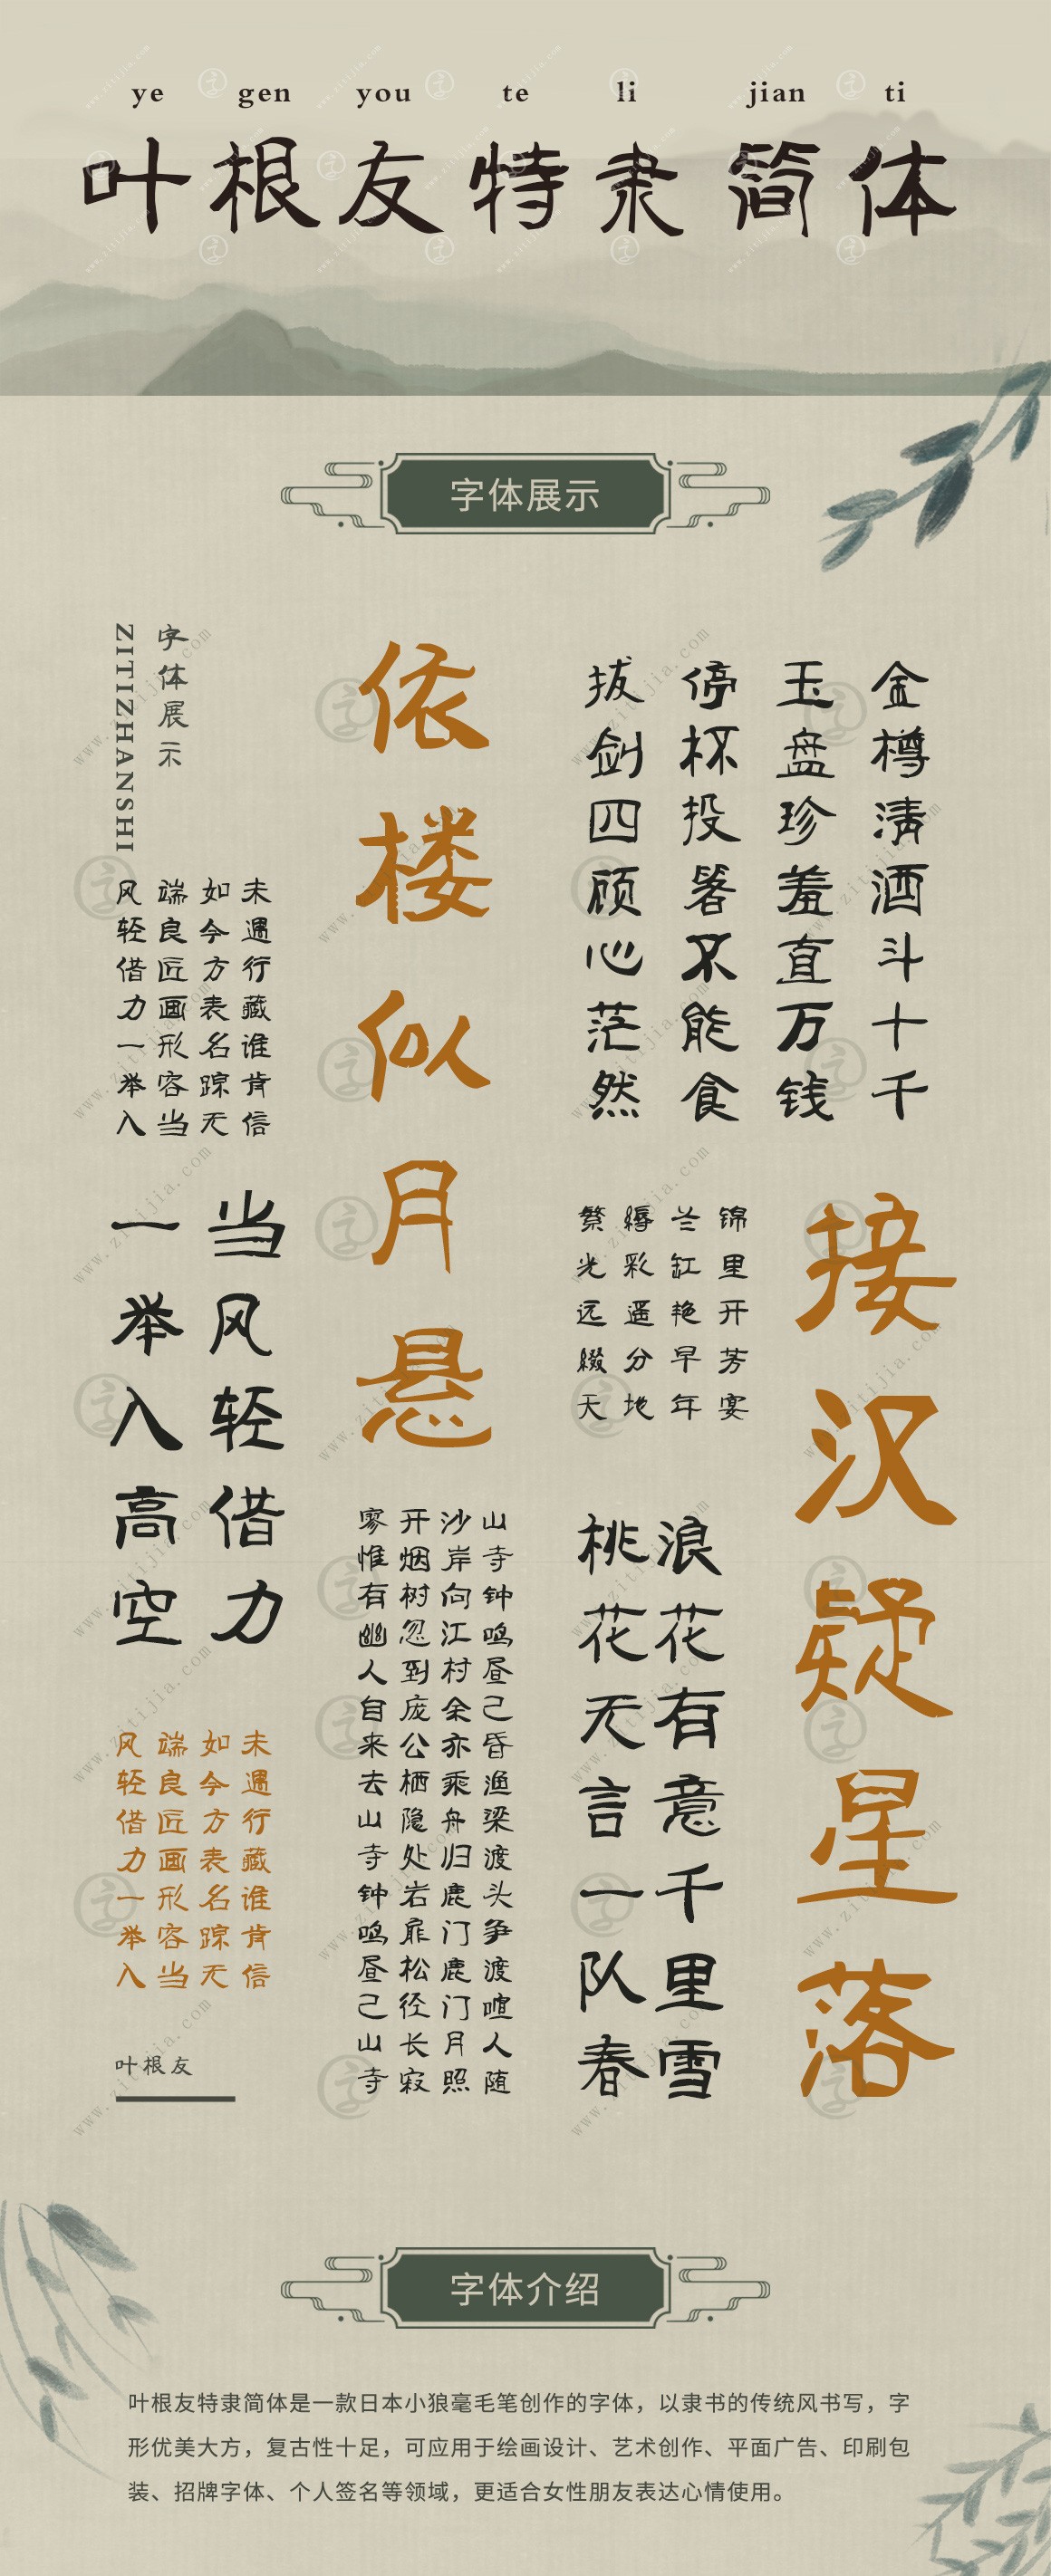 ye gen you te li jian ti
叶根友特隶简体
字体展示
字体展示
ZITIZHANSHI
金樽清酒斗十千
玉盘珍羞直万钱
停杯投箸不能食
拔剑四顾心茫然
依楼似月悬
未遇行藏谁肯信
如今方表名踪无
端良匠画形容当
风轻借力一举入
当风轻借力
一举入高空
接汉疑星落
锦里开芳宴
兰缸艳早年
缛彩遥分地
繁光远缀天
浪花有意千里雪
桃花无言一队春
山寺钟鸣昼己昏渔梁渡头争渡喧人随
沙岸向江村余亦乘舟归鹿门鹿门月照
开烟树忽到庞公栖隐处岩扉松径长寂
寥惟有幽人自来去山寺钟鸣昼己山寺
未遇行藏谁肯信
如今方表名踪无
端良匠画形容当
风轻借力一举入
叶根友
字体介绍
叶根友特隶简体是一款日本小狼毫毛笔创作的字体，以隶书的传统风书写，字
形优美大方，复古性十足，可应用于绘画设计、艺术创作、平面广告、印刷包
装、招牌字体、个人签名等领域，更适合女性朋友表达心情使用。
www.zitijia.com